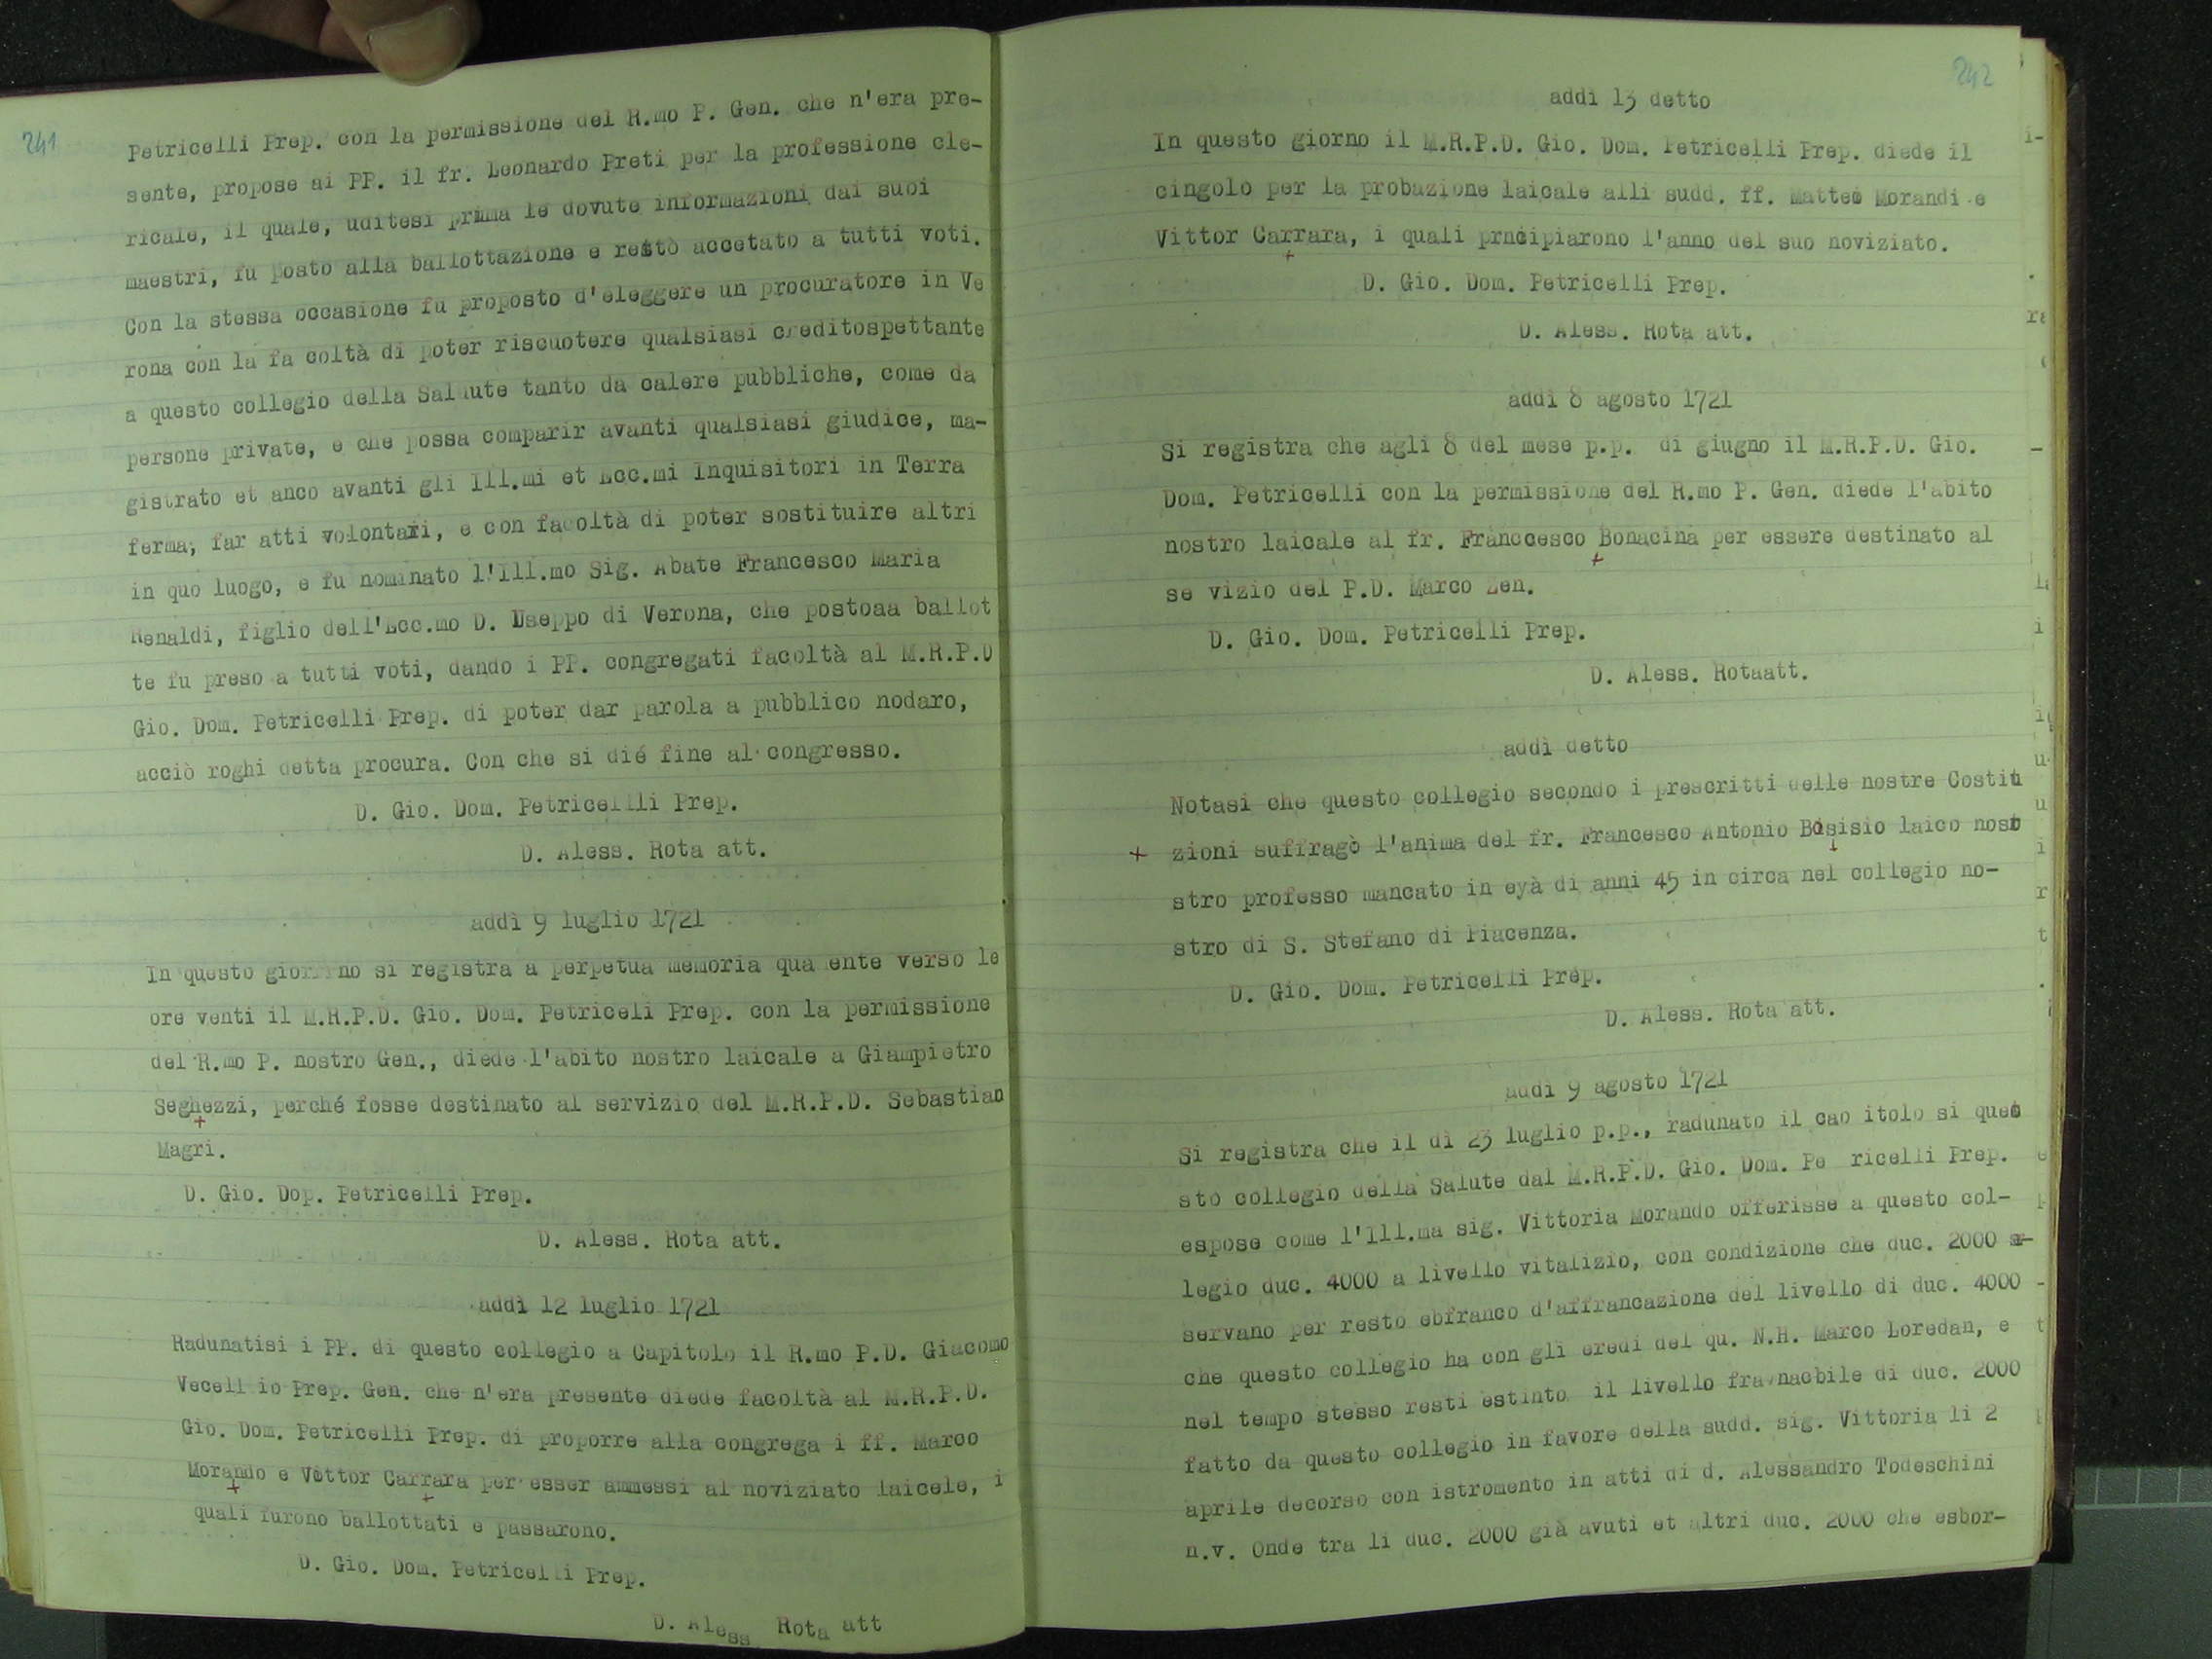 241
Petricelli Prep. con la permissione del R.mo P. Gen. che n'era pre-
sente, propose ai PP. il fr. Leonardo Preti per la professione cle-
ricale, il quale, uditesi prima le dovute informazioni dai suoi
maestri, fu posto alla ballottazione e restò accetato a tutti voti.
Con la stessa occasione fu proposto d'eleggere un procuratore in Ve
rona con la fa coltà di poter riscuotere qualsiasi creditospettante
a questo collegio della Saluute tanto da calere pubbliche, come da
persone private, e che possa comparir avanti qualsiasi giudice, ma-
gistrato et anco avanti gli Ill.mi et Ecc.mi Inquisitori in Terra
ferma, far atti volontari, e con facoltà di poter sostituire altri
in quo luogo, e fu nominato l'Ill.mo Sig. Abate Francesco Maria
Renaldi, figlio dell'Ecc.mo D. Useppo di Verona, che postoaa ballot
te fu preso a tutti voti, dando i PP. congregati facoltà al M.R.P.D
Gio. Dom. Petricelli Prep. di poter dar parola a pubblico nodaro,
acciò roghi detta procura. Con che si dié fine al congresso.
D. Gio. Dom. Petricellli Prep.
D. Aless. Rota att.
addì 9 luglio 1721
In questo giorrno si registra a perpetua memoria qua ente verso le
ore venti il M.R.P.D. Gio. Dom. Petriceli Prep. con la permissione
del R.mo P. nostro Gen., diede l'abito nostro laicale a Giampietro
Seghezzi, perché fosse destinato al servizio del M.R.P.D. Sebastian
+
Magri.
D. Gio. Dop. Petricelli Prep.
D. Aless. Rota att.
addì 12 luglio 1721
Radunatisi i PP. di questo collegio a Capitolo il R.mo P.D. Giacomo
Vecell io Prep. Gen. che n'era presente diede facoltà al M.R.P.D.
Gio. Dom. Petricelli Prep. di proporre alla congrega i ff. Marco
Morando e Vittor Carrara per esser ammessi al noviziato laicele, i
+ +
quali furono ballottati e passarono.
D. Gio. Dom. Petricelli Prep.
D. Aless Rota att
242
addì 13 detto
In questo giorno il M.R.P.D. Gio. Dom. Petricelli Prep. diede il
cingolo per la probazione laicale alli sudd. ff. Matteo Morandi e
Vittor Carrara, i quali prncipiarono l'anno del suo noviziato.
+
D. Gio. Dom. Petricelli Prep.
D. Aless. Rota att.
addì 8 agosto 1721
Si registra che agli 8 del mese p.p. di giugno il M.R.P.D. Gio.
Dom. Petricelli con la permissione del R.mo P. Gen. diede l'abito
nostro laicale al fr. Franccesco Bonacina per essere destinato al
+
se vizio del P.D. Marco Zen.
D. Gio. Dom. Petricelli Prep.
D. Aless. Rotaatt.
addì detto
Notasi che questo collegio secondo i prescritti delle nostre Costitu
+ zioni suffragò l'anima del fr. Francesco Antonio Bisisio laico nost
stro professo mancato in eyà di anni 45 in circa nel collegio no-
stro di S. Stefano di Piacenza.
D. Gio. Dom. Petricelli Prep.
D. Aless. Rota att.
addì 9 agosto 1721
Si registra che il dì 23 luglio p.p., radunato il cao itolo si ques
sto collegio della Salute dal M.R.P.D. Gio. Dom. Pe ricelli Prep.
espose come l'Ill.ma sig. Vittoria Morando offerisse a questo col-
legio duc. 4000 a livello vitalizio, con condizione che duc. 2000
servano per resto ebfranco d'affrancazione del livello di duc. 4000
che questo collegio ha con gli eredi del qu. N.H. Marco Loredan, e
nel tempo stesso resti estinto il livello franacbile di duc. 2000
fatto da questo collegio in favore della sudd. sig. Vittoria li 2
aprile decorso con istromento in atti di d. Alessandro Todeschini
n.v. Onde tra li duc. 2000 già avuti et altri duc. 2000 che esbor-